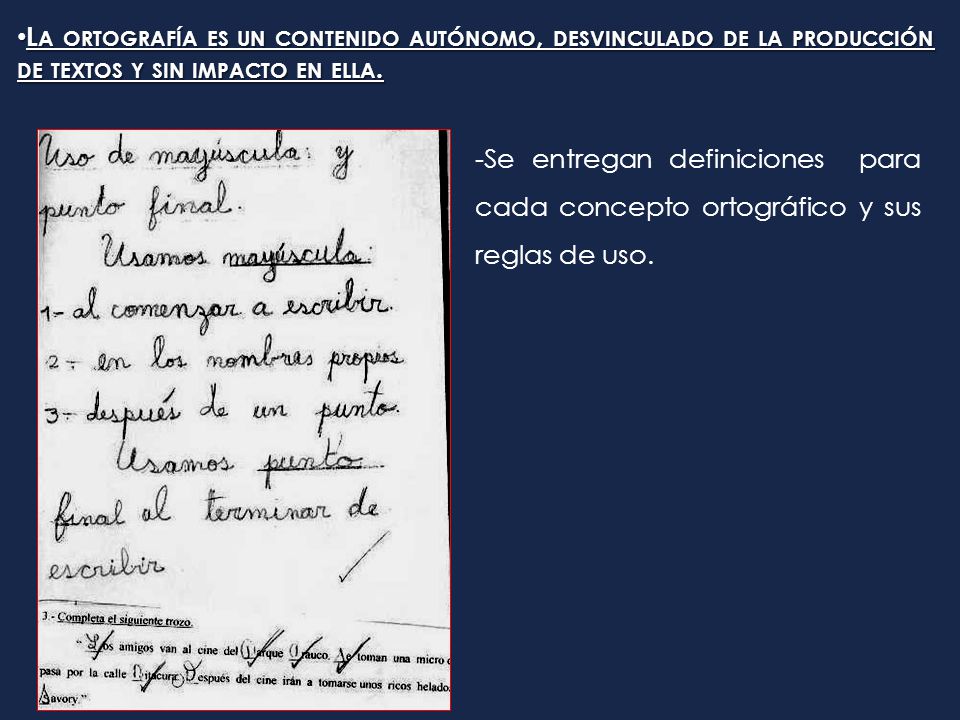 •LA ORTOGRAFÍA ES UN CONTENIDO AUTÓNOMO, DESVINCULADO DE LA PRODUCCIÓN
DE TEXTOS Y SIN IMPACTO EN ELLA.
Uso de mayúscula: y
punto final.
Usamos mayúscula:
1- al comenzar a escribir.
2- en los nombres propios
3- después de un punto.
Usamos punto
final al terminar de
escribir
3.- Completa el siguiente trozo.
"Los amigos van al cine del Parque Arauco. Se toman una micro
pasa por la calle Vitacura. Después del cine irán a tomarse unos ricos helado
Savory."
-Se entregan definiciones para
cada concepto ortográfico y sus
reglas de uso.